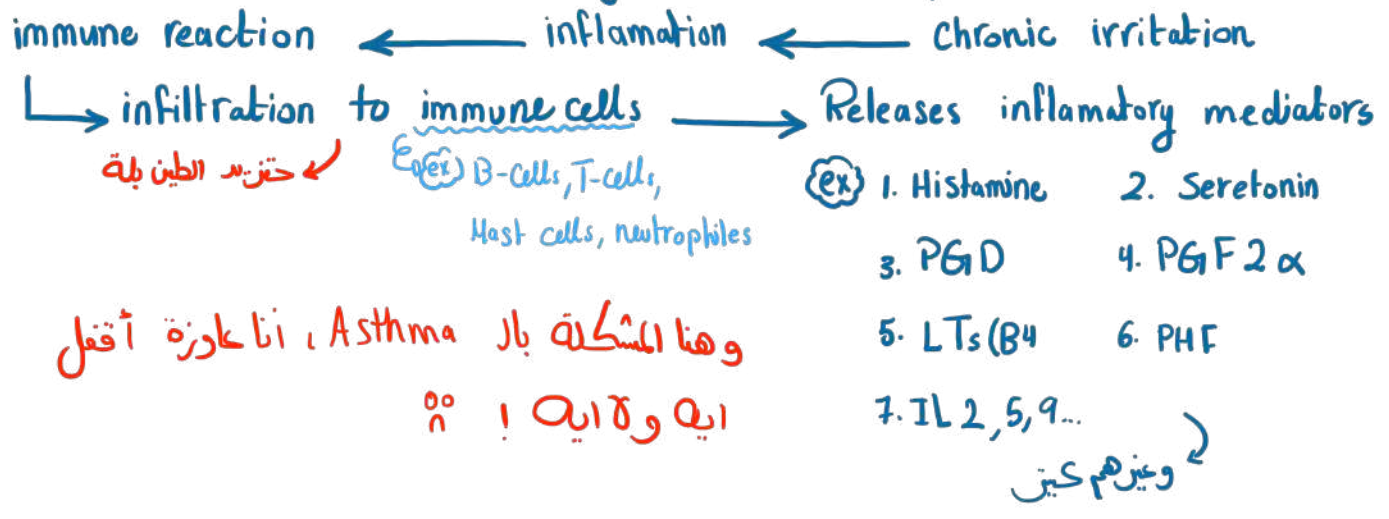 immune reaction ← inflamation ← chronic irritation
↳ infiltration to immune cells → Releases inflamatory mediators
حتزيد الطين بلة
(ex) B-cells, T-cells,
Mast cells, neutrophiles
(ex) 1. Histamine 2. Seretonin
3. PGD 4. PGF2α
5. LTs(B4 6. PHF
7. IL 2,5,9...
وغيرهم كتير
وهنا المشكلة بال Asthma، أنا عاوزة أقفل
ايه ولا ايه !